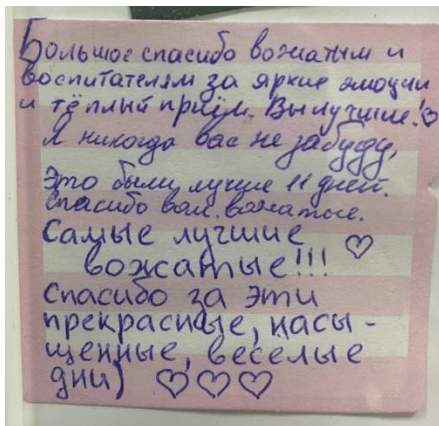 Большое спасибо вожатым и
воспитателям за яркие эмоции
и тёплый приём. Вы лучшие!♡
Я никогда вас не забуду,
Это были лучшие 11 дней.
Спасибо вам, вожатые.
Самые лучшие
вожатые!!! ♡
Спасибо за эти
прекрасные, насы-
щенные, весёлые
дни) ♡♡♡